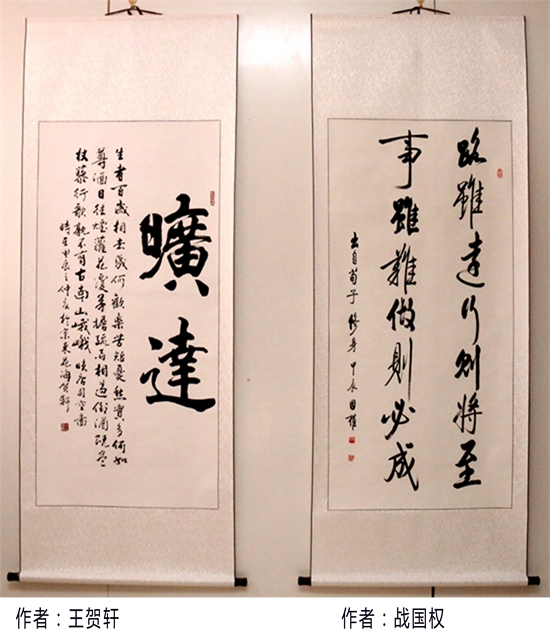 曠達
生者百歲相去幾何歡樂苦短憂愁實多何如
尊酒日往煙蘿花覆茅檐疏雨相過倒酒既盡
杖藜行歌孰不有古南山峨峨 唐司空圖
時在甲辰之仲夏於京東
路雖遠行則將至
事雖難做則必成
出自荀子修身 甲辰 国權
作者：王贺轩
作者：战国权